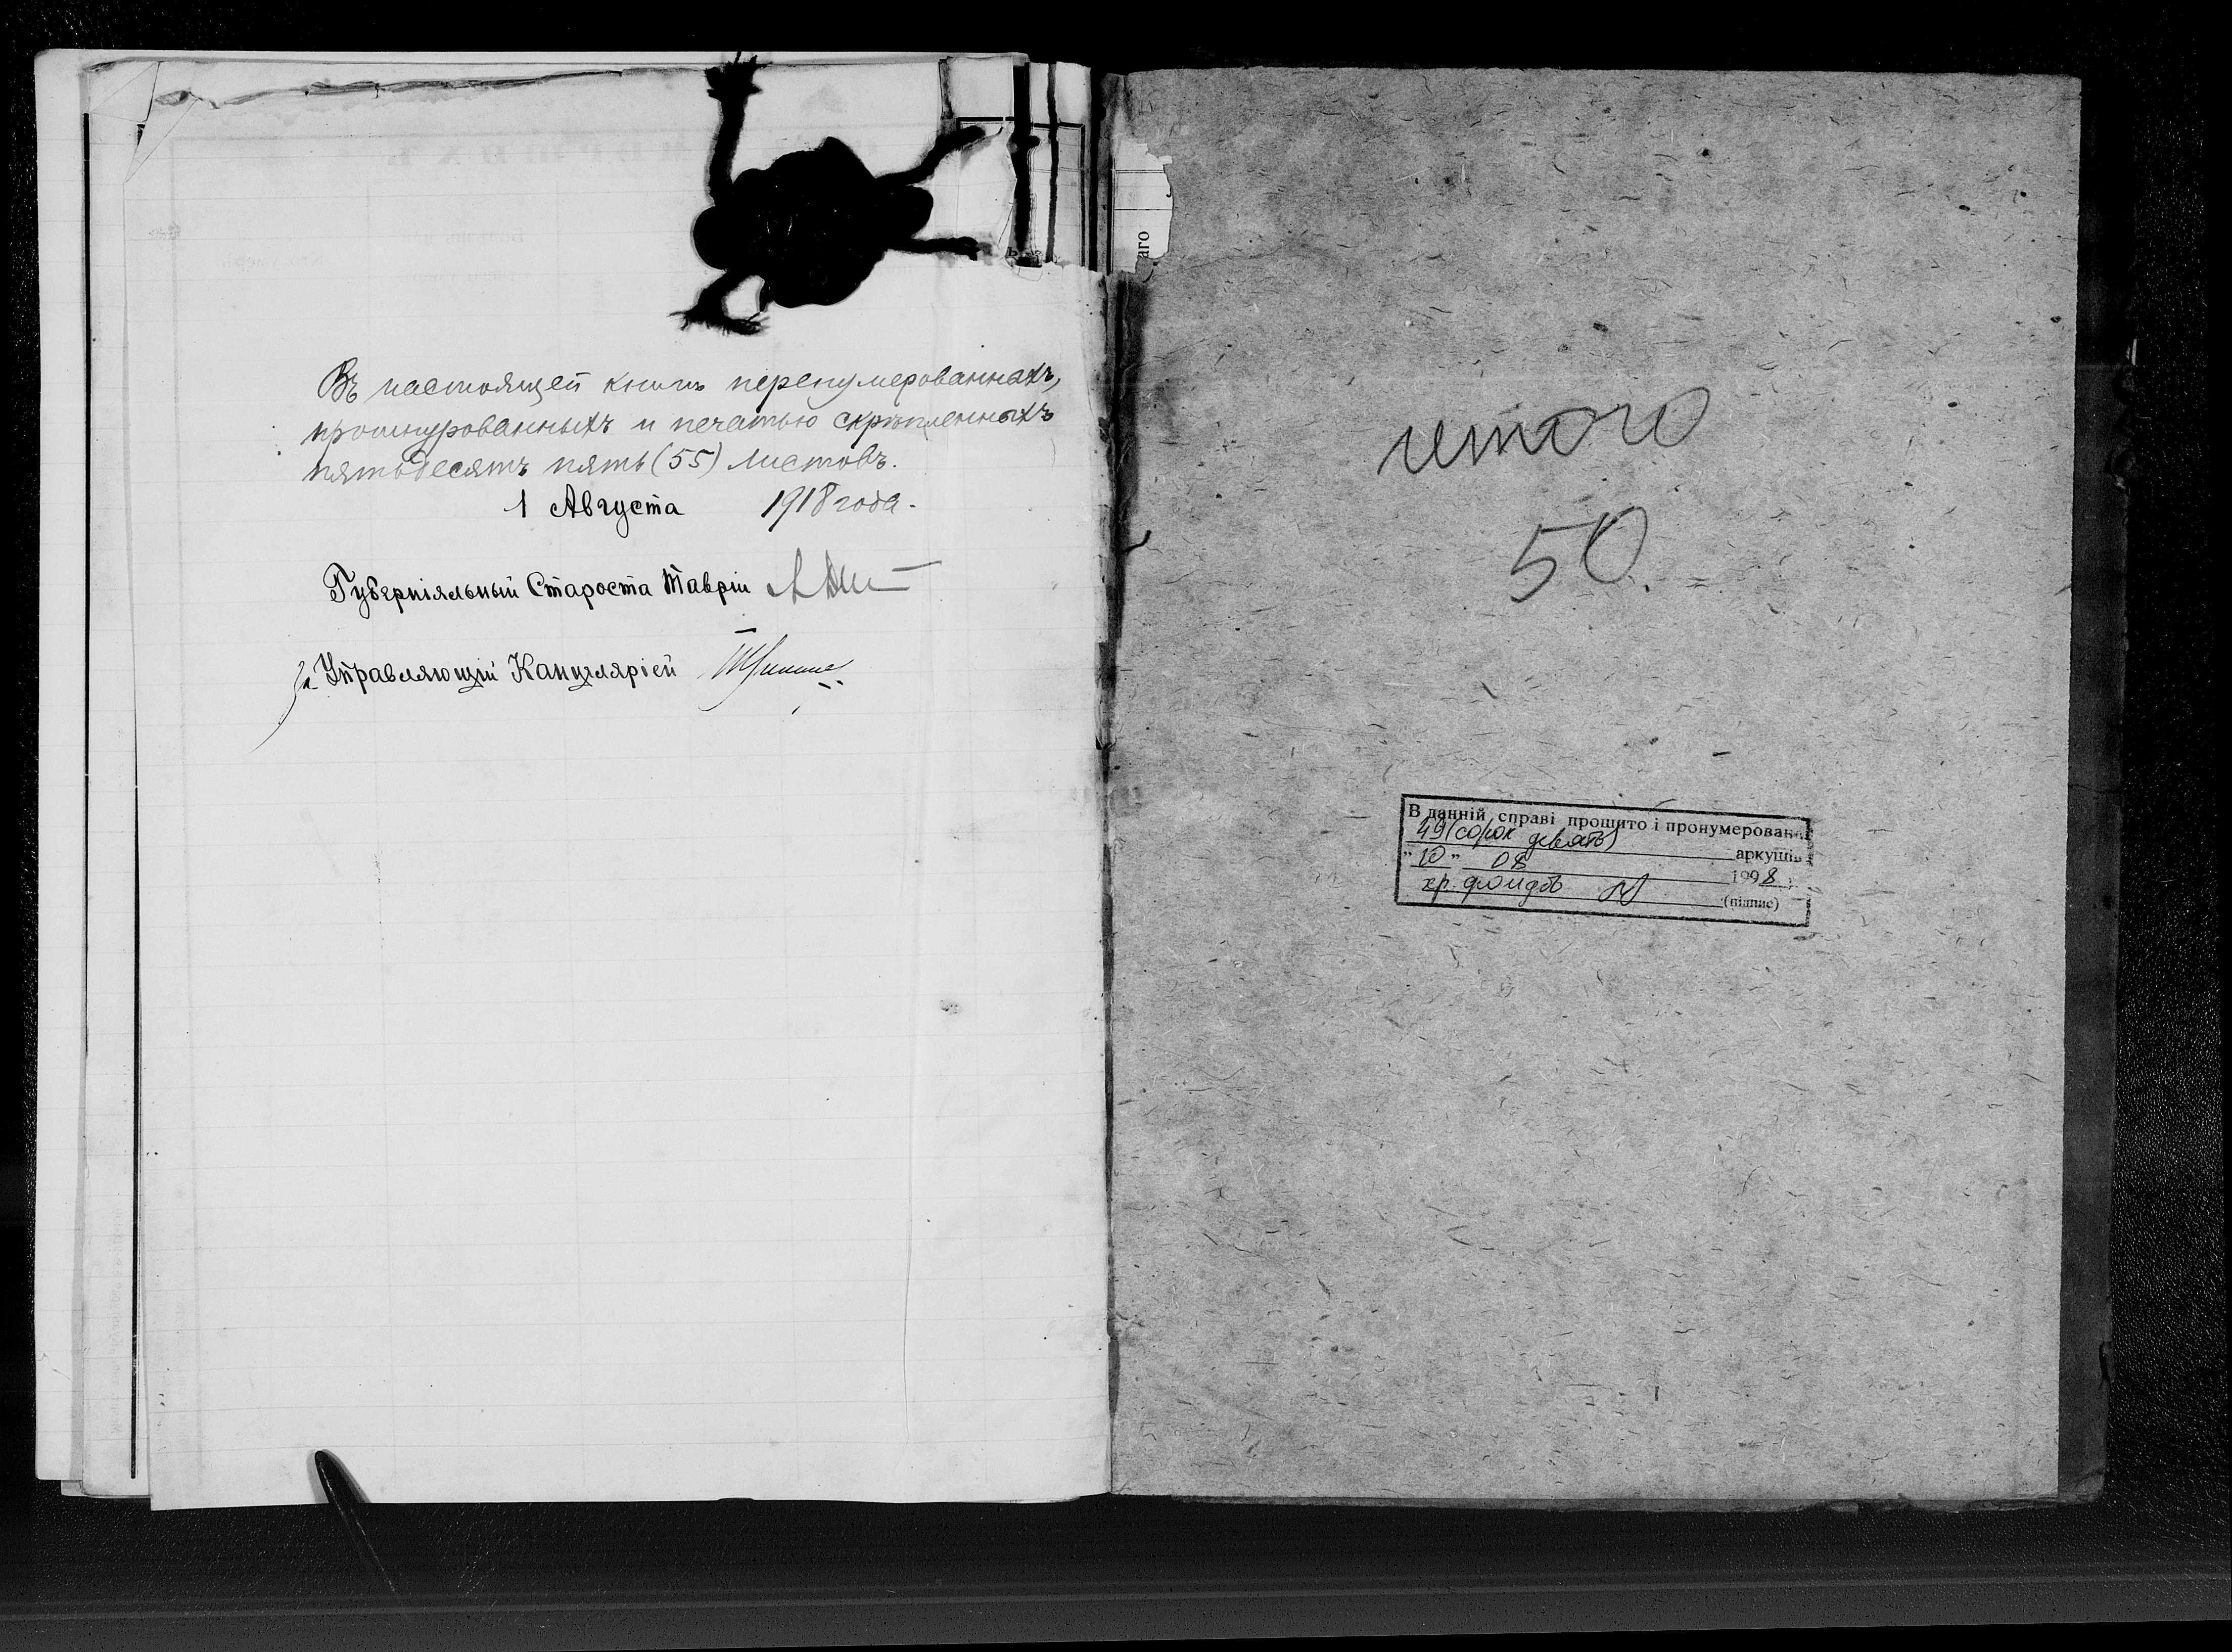 Въ настоящей книгѣ перенумерованныхъ,
прошнурованныхъ и печатью скрѣпленныхъ
пятьдесятъ пять (55) листовъ.
1 Августа 1918 года.
Губерніяльный Староста Тавріи
За Управляющій Канцляріей
аго
итого
50.
В данній справі прошито і пронумеровано
49 (сорок девять) аркушів
"10" 08 1998
хр. фондов (підпис)